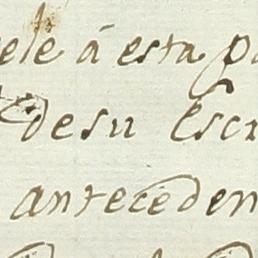 ele á esta pa
de su Escr
anteceden